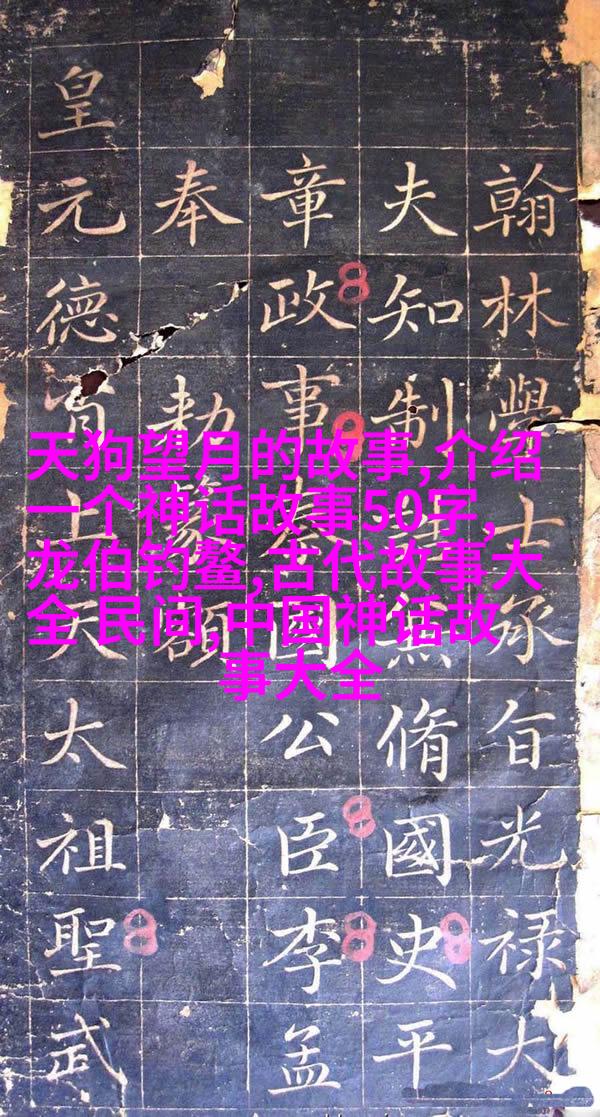 天狗望月的故事,介绍
一个神话故事50字,
龙伯钓鳌,古代故事大
全 民间,中国神话故
事大全
翰林學士承旨光禄大
夫知制誥兼脩國史平
章政事秦國公臣李孟
奉勑篆額
皇元德上天太祖聖武